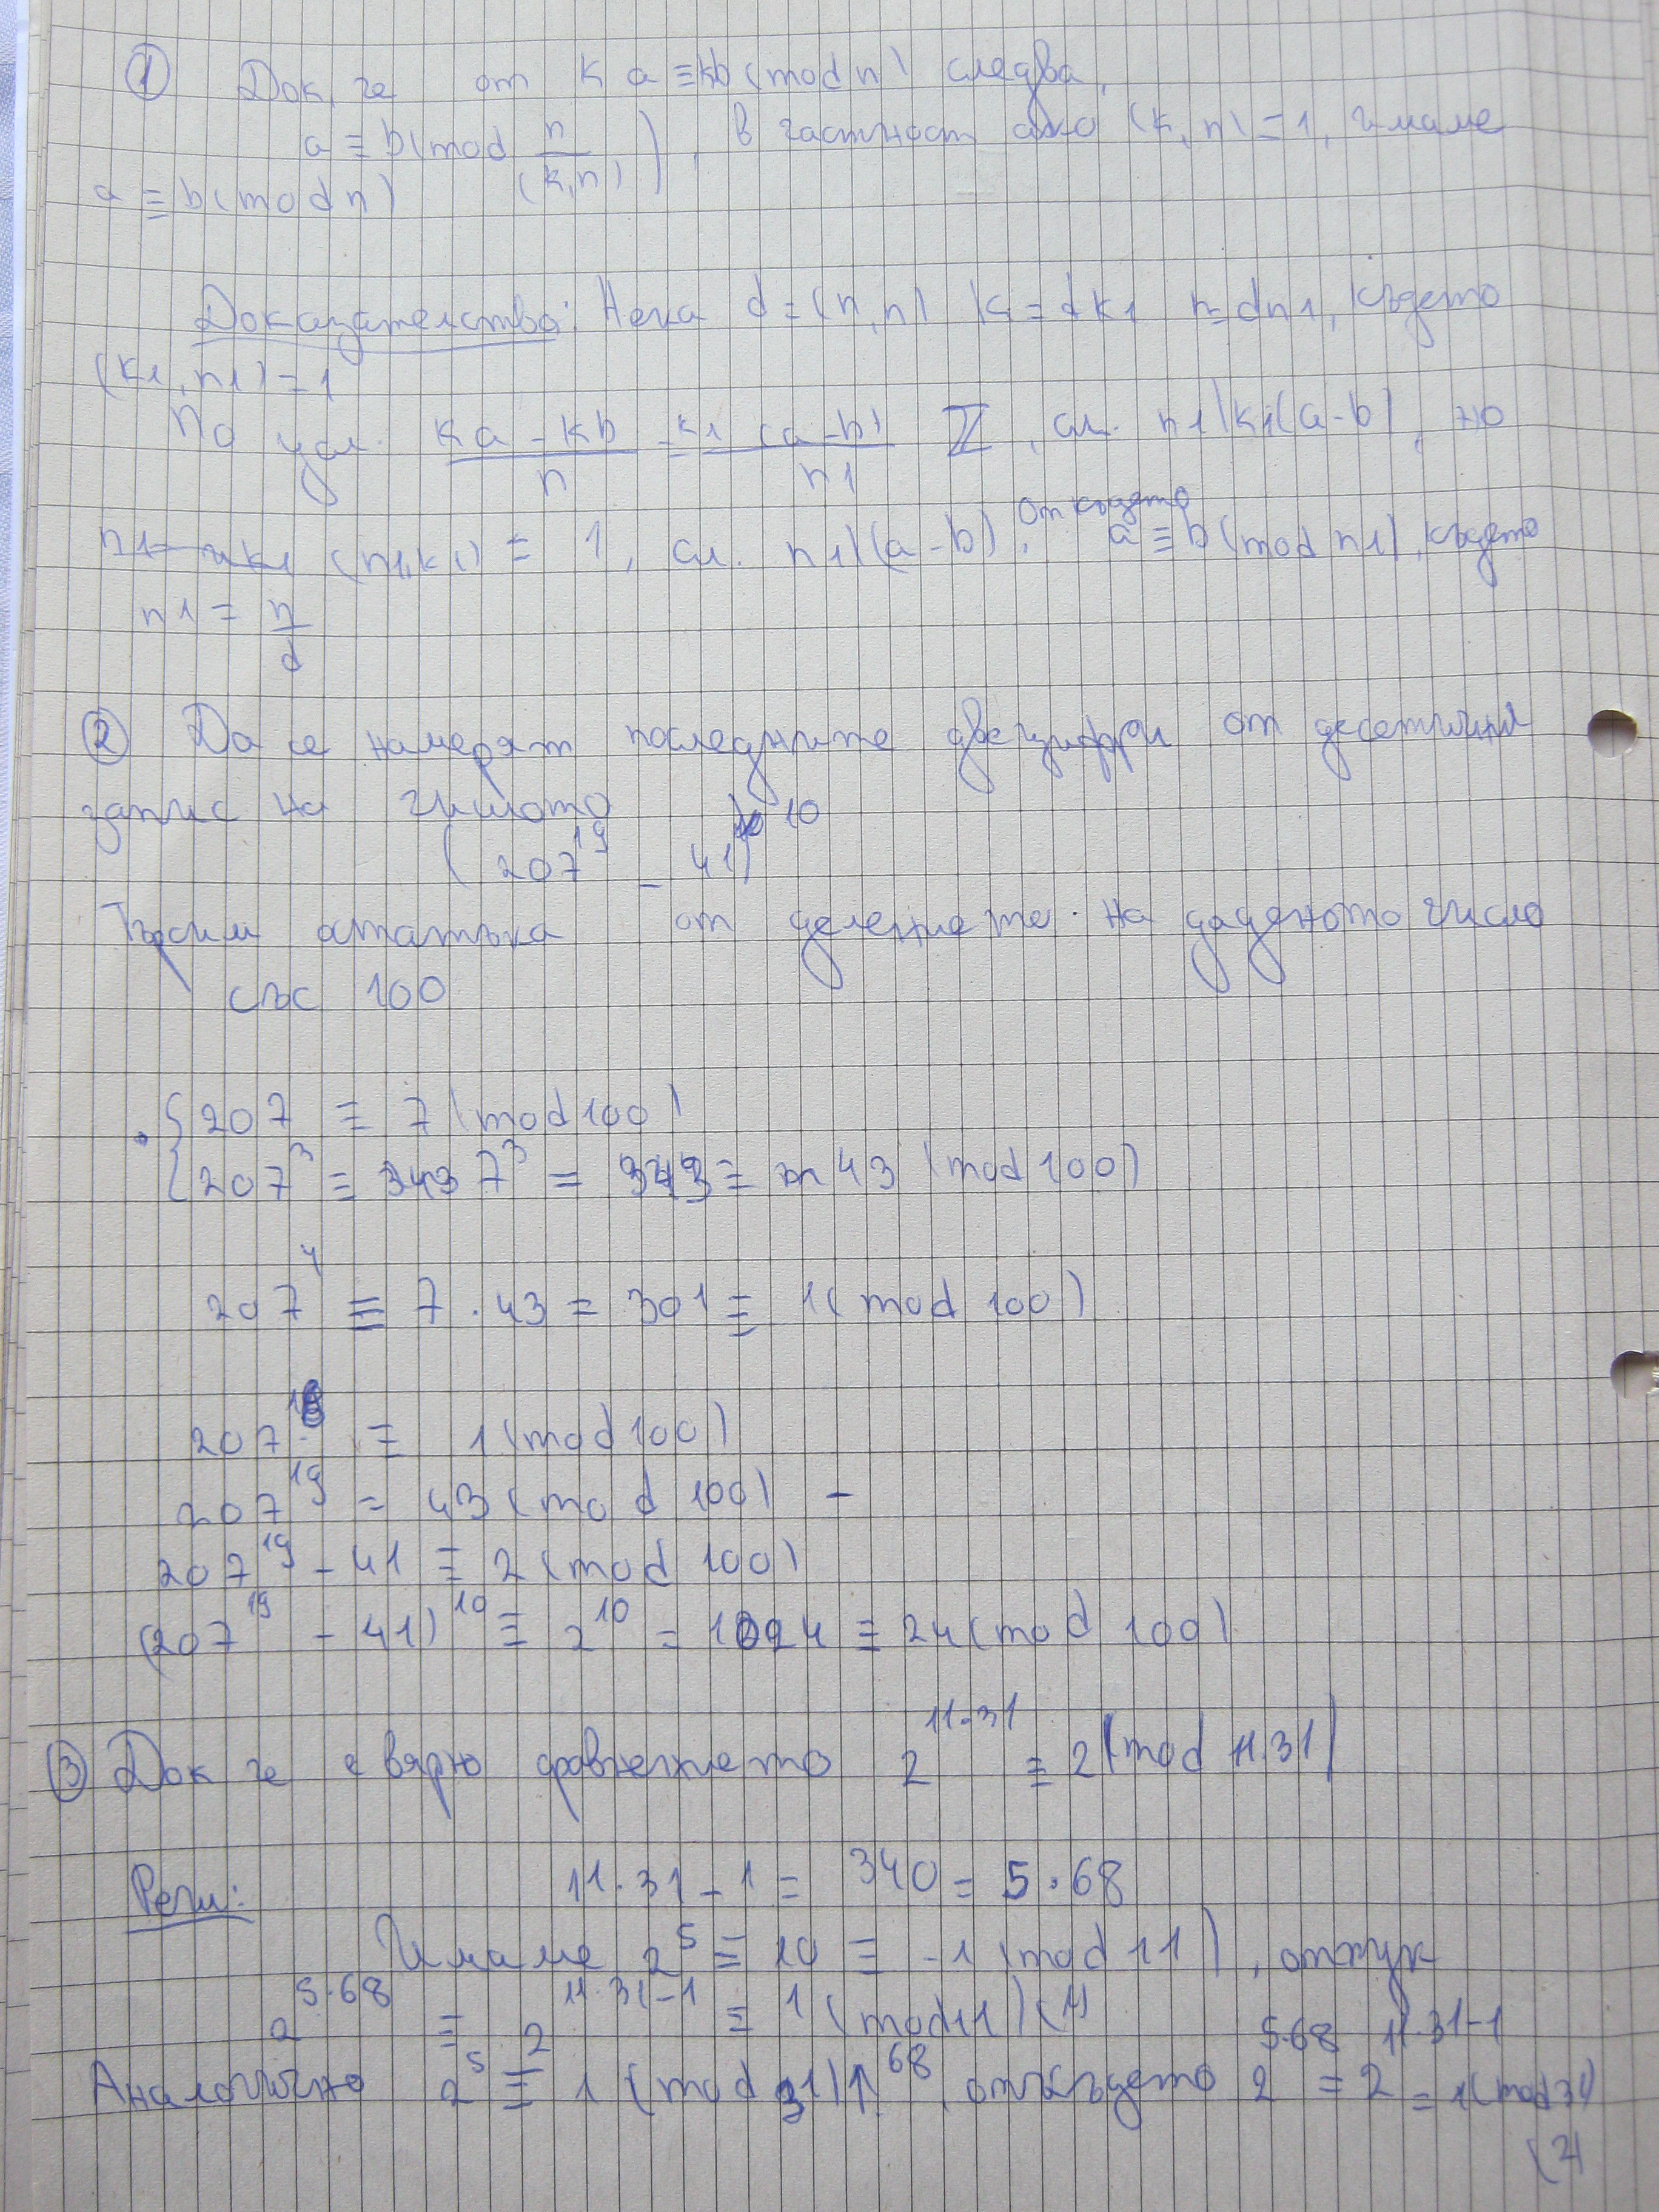 ① Док, че от ka ≡ kb (mod n) следва,
a ≡ b (mod n/(k,n)), в частност ако (k,n) = 1, имаме
a ≡ b (mod n)
Доказателство: Нека d = (n,n) k = dk1 n = dn1, където
(k1, n1) = 1
По усл. (ka - kb)/n = k1(a-b)/n1 ℤ, сл. n1|k1(a-b), но
(n1,k1) = 1, сл. n1|(a-b), откъдето a ≡ b (mod n1), където
n1 = n/d
② Да се намерят последните две цифри от десетичния
запис на числото
(207^19 - 41)^10
Търсим остатъка от делението на даденото число
със 100
{ 207 ≡ 7 (mod 100)
207^3 ≡ 7^3 = 343 ≡ 43 (mod 100)
207^4 ≡ 7.43 = 301 ≡ 1 (mod 100)
207^16 ≡ 1 (mod 100)
207^19 = 43 (mod 100) -
207^19 - 41 ≡ 2 (mod 100)
(207^19 - 41)^10 ≡ 2^10 = 1024 ≡ 24 (mod 100)
③ Док че е вярно сравнението 2^11.31 ≡ 2 (mod 11.31)
Реш: 11.31 - 1 = 340 = 5.68
Имаме 2^5 ≡ 10 ≡ -1 (mod 11), оттук
2^5.68 ≡ 2^11.31-1 ≡ 1 (mod 11) (1)
Аналогично 2^5 ≡ 1 (mod 31)↑^68, откъдето 2^5.68 = 2^11.31-1 = 1 (mod 31)
(2)